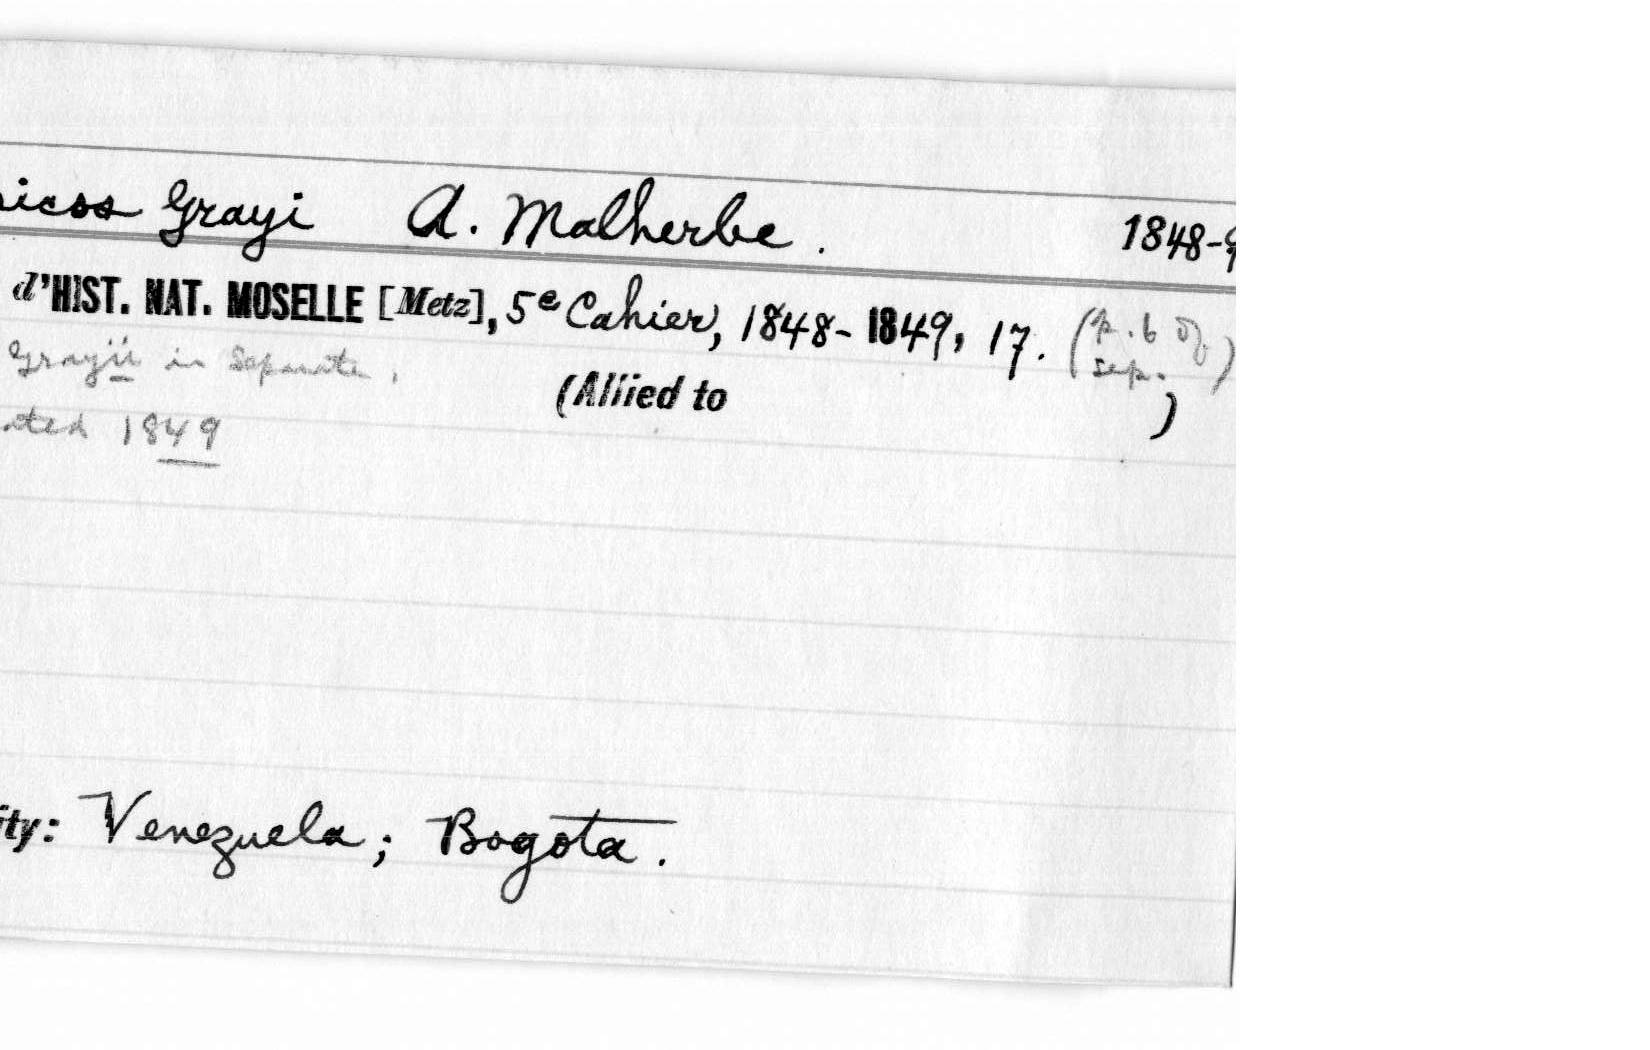 Grayi A. Malherbe. 1848-9
d'HIST. NAT. MOSELLE [Metz], 5e Cahier, 1848-1849, 17. (p. 6 of sep.)
Grayii in Separate.
(Allied to )
ated 1849
ity: Venezuela; Bogota.